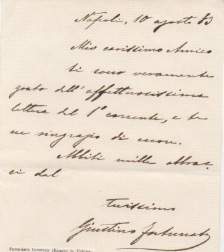 Napoli, 10 agosto 83
Mio carissimo Amico
ti sono veramente
grato dell'affettuosissima
lettera del 1° corrente, e te
ne ringrazio di cuore.
Abbiti mille abbrac
ci dal
tuissimo
Giustino Fortunato